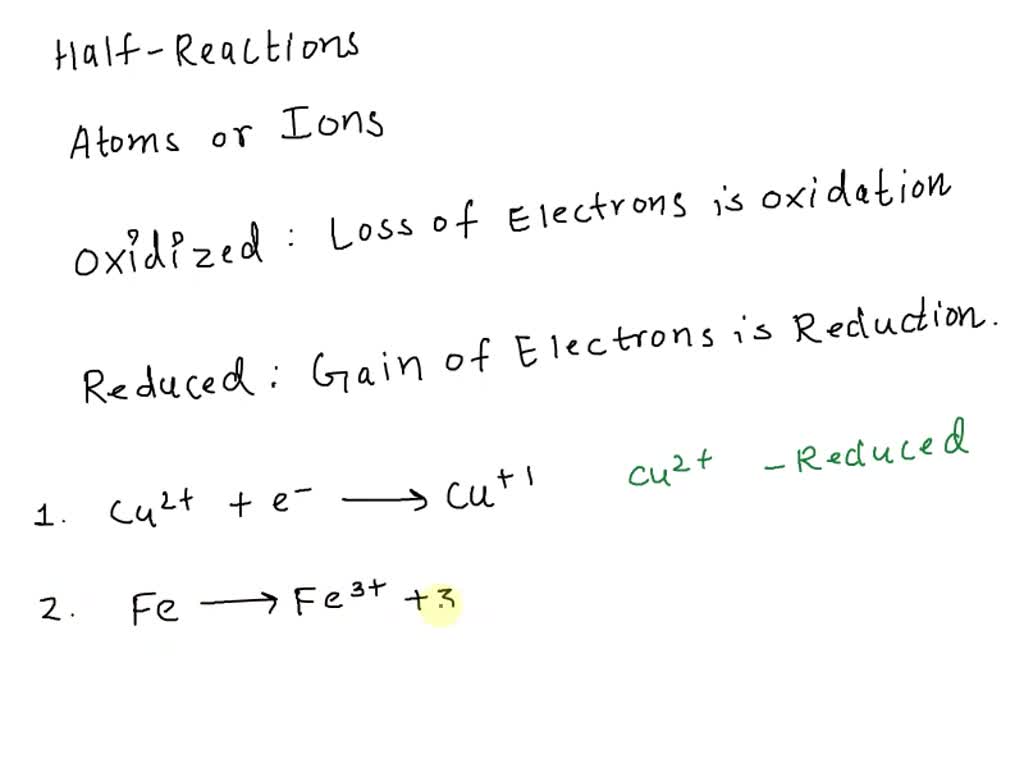 Half-Reactions
Atoms or Ions
Oxidized : Loss of Electrons is oxidation
Reduced : Gain of Electrons is Reduction.
1. Cu²⁺ + e⁻ ⟶ Cu⁺¹ Cu²⁺ - Reduced
2. Fe ⟶ Fe³⁺ + 3